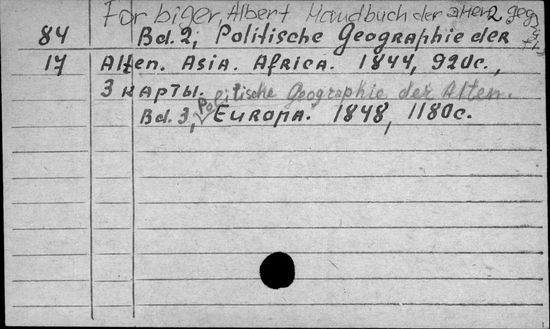 Forbiger, Albert Handbuch der alten geogr
84 Bd. 2, Politische Geographie der
17 Alten. Asia. Africa. 1844, 920с.,
3 карты. Politische Geographie der Alten.
Bd. 3, Europa. 1848, 1180с.